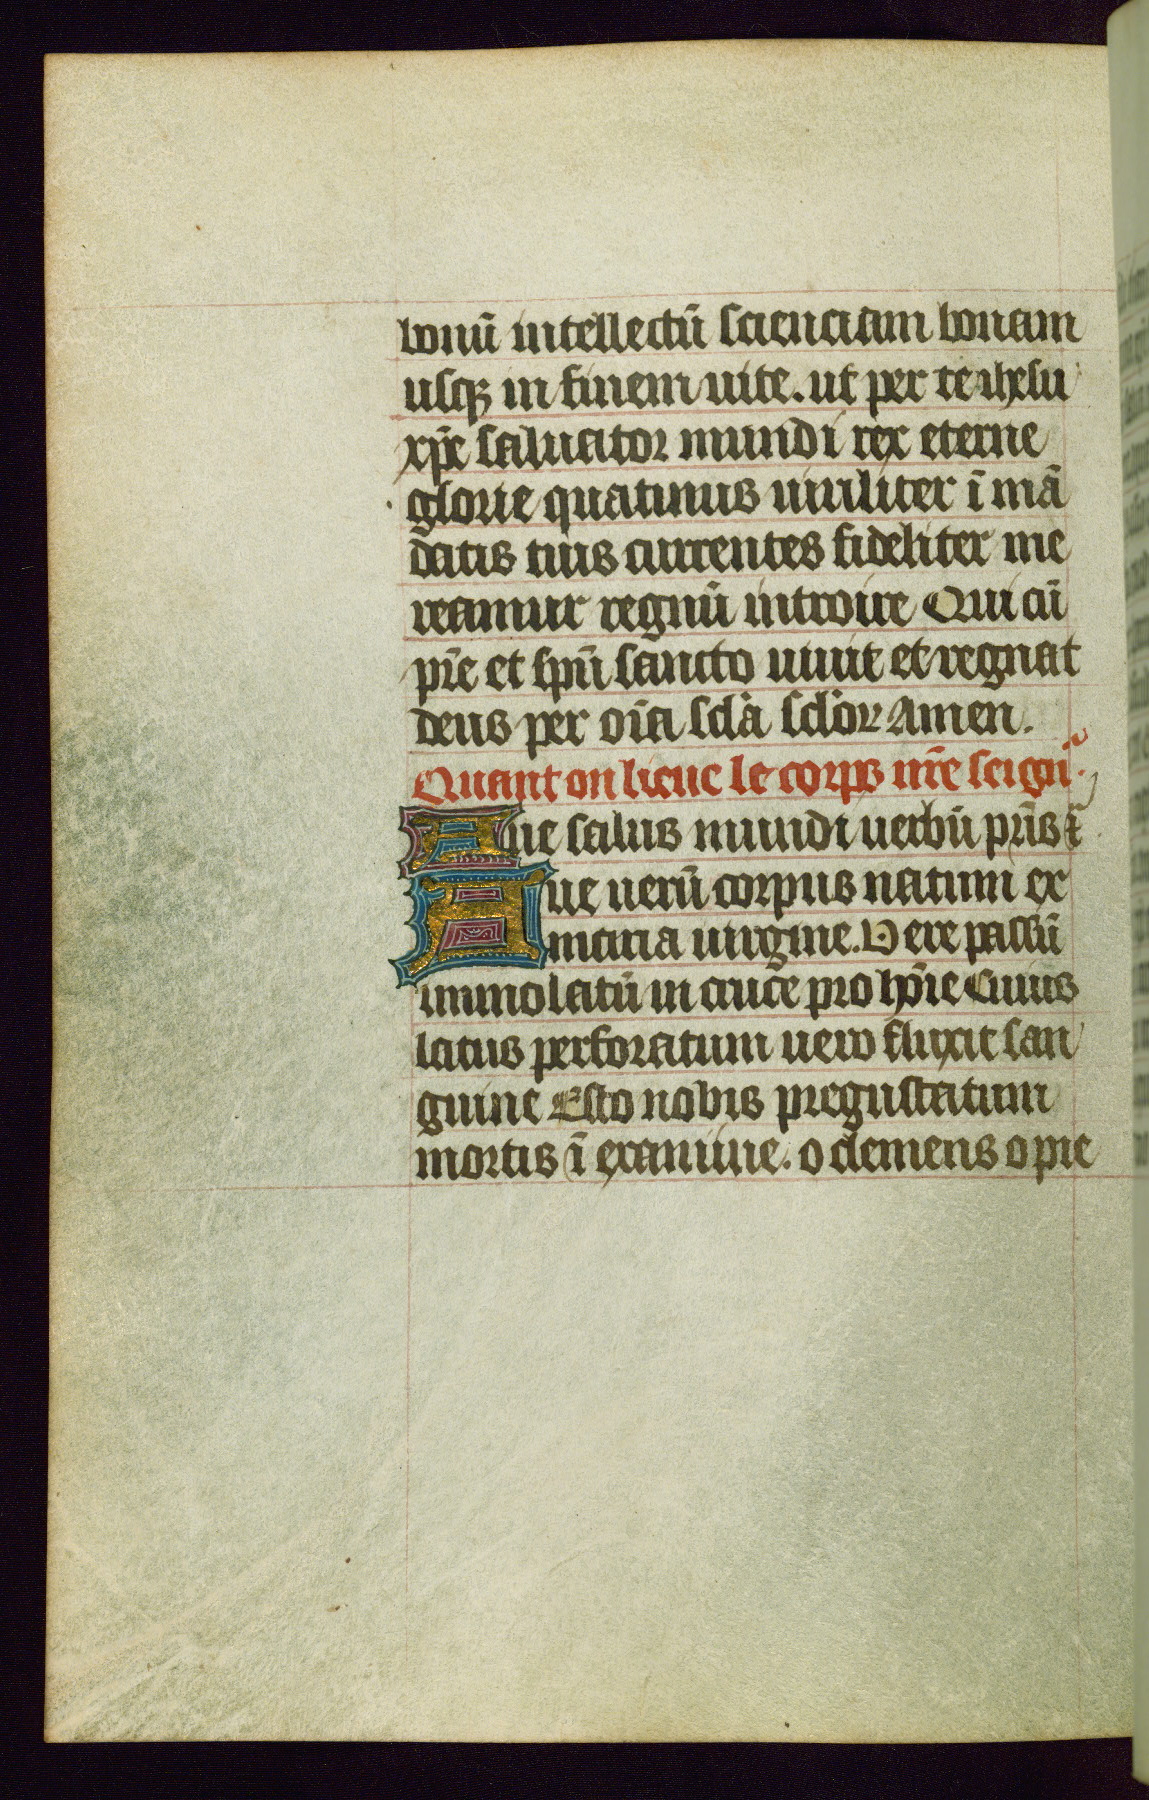 bonū intellectū scienciam bonam
usqꝫ in finem uite. ut per te ihesu
xp̄e saluator mundi rex eterne
glorie quatinus uiriliter ī mā
datis tuis currentes fideliter me
reamur regnū introire Qui cū
pr̄e et spū sancto uiuit et regnat
deus per oīa sclā sclōr Amen.
Quant on lieue le corps nr̄e seign̄r
Aue salus mundi uerbū pr̄is &c̄
Aue uerū corpus natum ex
maria uirgine. Vere passū
immolatū in cruce pro hōīe Cuius
latus perforatum uero fluxit san
guine Esto nobis pregustatum
mortis ī examine. o clemens o pie